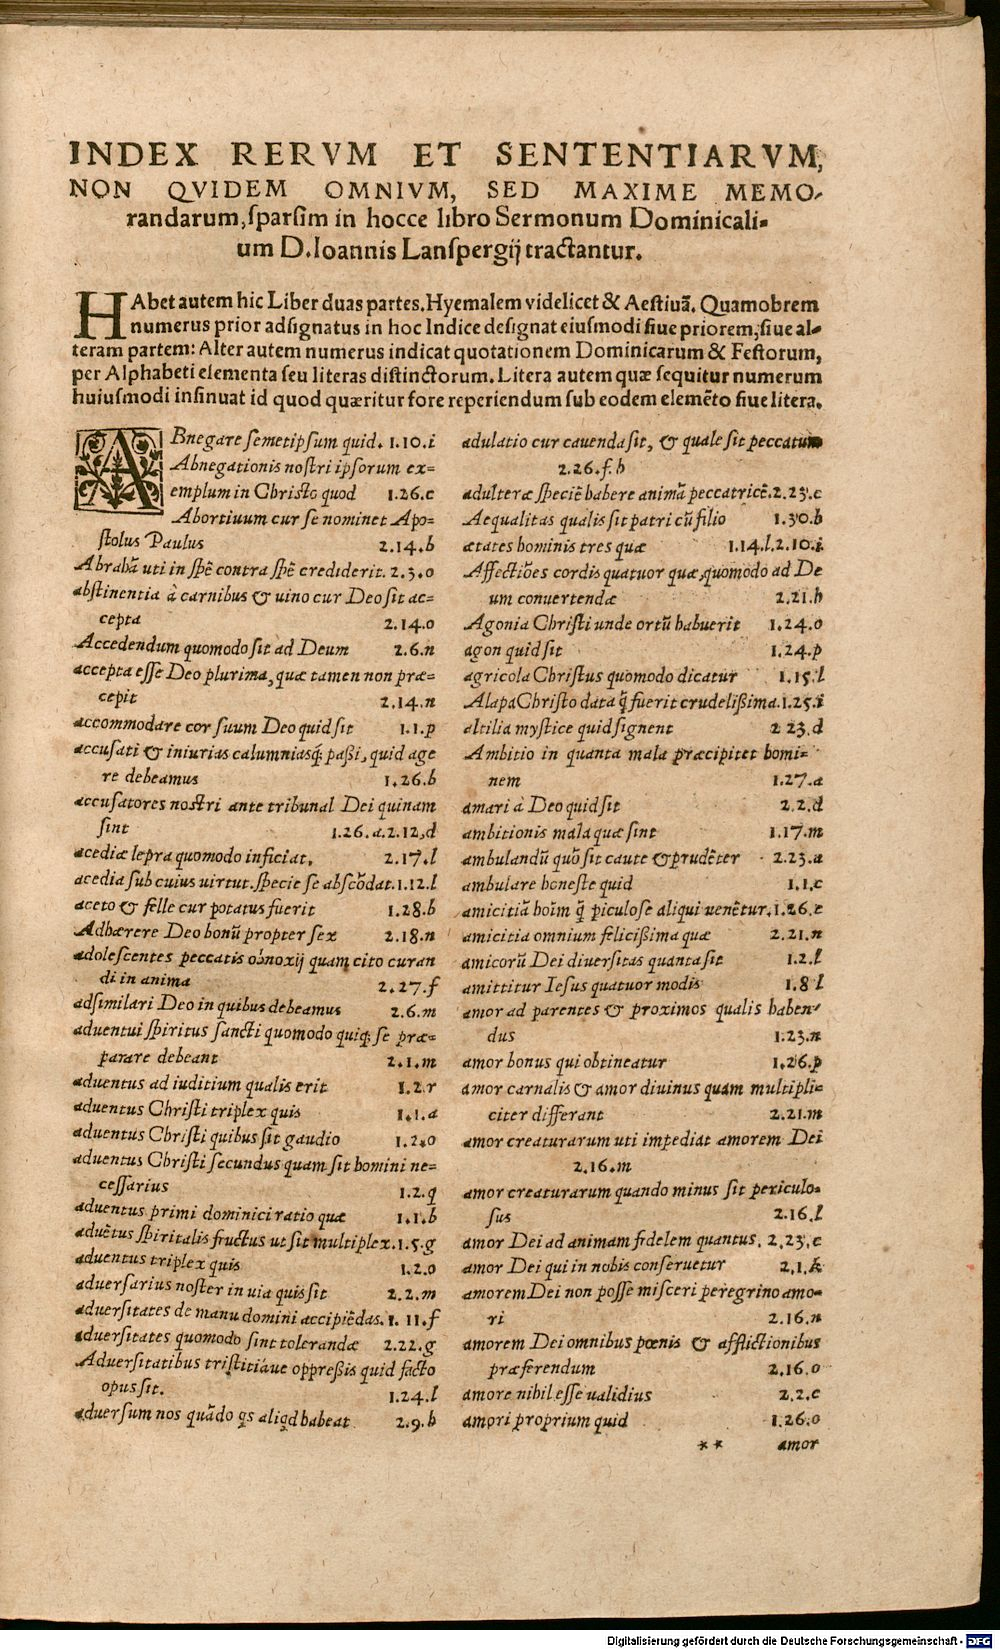 INDEX RERVM ET SENTENTIARVM,
NON QVIDEM OMNIVM, SED MAXIME MEMO-
randarum, sparsim in hocce libro Sermonum Dominicali-
um D. Ioannis Lanspergij tractantur.
HAbet autem hic Liber duas partes. Hyemalem videlicet & Aestiuã. Quamobrem
numerus prior adsignatus in hoc Indice designat eiusmodi siue priorem, siue al-
teram partem: Alter autem numerus indicat quotationem Dominicarum & Festorum,
per Alphabeti elementa seu literas distinctorum. Litera autem quæ sequitur numerum
huiusmodi insinuat id quod quæritur fore reperiendum sub eodem elemẽto siue litera.
ABnegare semetipsum quid. 1.10.i
Abnegationis nostri ipsorum ex=
emplum in Christo quod 1.26.c
Abortiuum cur se nominet Apo=
stolus Paulus 2.14.b
Abrahã uti in spẽ contra spẽ crediderit. 2.3.o
abstinentia à carnibus & uino cur Deo sit ac=
cepta 2.14.o
Accedendum quomodo sit ad Deum 2.6.n
accepta esse Deo plurima, quæ tamen non præ=
cepit 2.14.n
accommodare cor suum Deo quid sit 1.1.p
accusati & iniurias calumniasq; paßi, quid age
re debeamus 1.26.b
accusatores nostri ante tribunal Dei quinam
sint 1.26.a.2.12.d
acediæ lepra quomodo inficiat. 2.17.l
acedia sub cuius virtut. specie se abscõdat. 1.12.l
aceto & felle cur potatus fuerit 1.28.b
Adhærere Deo bonũ propter sex 2.18.n
adolescentes peccatis obnoxij quam cito curan
di in anima 2.27.f
adsimilari Deo in quibus debeamus 2.6.m
aduentui spiritus sancti quomodo quisq; se præ=
parare debeant 2.1.m
aduentus ad iuditium qualis erit 1.2.r
aduentus Christi triplex quis 1.1.a
aduentus Christi quibus sit gaudio 1.2.o
aduentus Christi secundus quam sit homini ne=
cessarius 1.2.q
aduentus primi dominici ratio quæ 1.1.b
aduẽtus spiritalis fructus ut sit multiplex. 1.5.g
aduentus triplex quis 1.2.o
aduersarius noster in via quis sit 2.2.m
aduersitates de manu domini accipiẽdas. 1.11.f
aduersitates quomodo sint tolerandæ 2.22.g
Aduersitatibus tristitiáue oppreßis quid facto
opus sit. 1.24.l
aduersum nos quãdo habeat 2.9.b
adulatio cur cauenda sit, & quale sit peccatum
2.26.f.h
adulteræ speciẽ habere animã peccatricẽ. 2.23.c
Aequalitas qualis sit patri cũ filio 1.30.b
ætates hominis tres quæ 1.14.l.2.10.i
Affectiões cordis quatuor quæ, quomodo ad De
um conuertendæ 2.21.h
Agonia Christi unde ortũ habuerit 1.24.o
agon quid sit 1.24.p
agricola Christus quomodo dicatur 1.15.l
Alapa Christo data q̃ fuerit crudelißima. 1.25.i
altilia mystice quid signent 2 23.d
Ambitio in quanta mala præcipitet homi=
nem 1.27.a
amari à Deo quid sit 2.2.d
ambitionis mala quæ sint 1.17.m
ambulandũ quõ sit caute & prudẽter 2.23.a
ambulare honeste quid 1.1.c
amicitiã hoĩm q̃ piculose aliqui uenẽtur. 1.26.e
amicitia omnium felicißima quæ 2.21.n
amicorũ Dei diuersitas quanta sit 1.2.l
amittitur Iesus quatuor modis 1.8 l
amor ad parentes & proximos qualis haben-
dus 1.23.n
amor bonus qui obtineatur 1.26.p
amor carnalis & amor diuinus quam multipli=
citer differant 2.21.m
amor creaturarum uti impediat amorem Dei
2.16.m
amor creaturarum quando minus sit periculo=
sus 2.16.l
amor Dei ad animam fidelem quantus. 2.23.c
amor Dei qui in nobis conseruetur 2.1.k
amorem Dei non posse misceri peregrino amo=
ri 2.16.n
amorem Dei omnibus pœnis & afflictionibus
præferendum 2.16.o
amore nihil esse ualidius 2.2.c
amori proprium quid 1.26.o
** amor
Digitalisierung gefördert durch die Deutsche Forschungsgemeinschaft - DFG